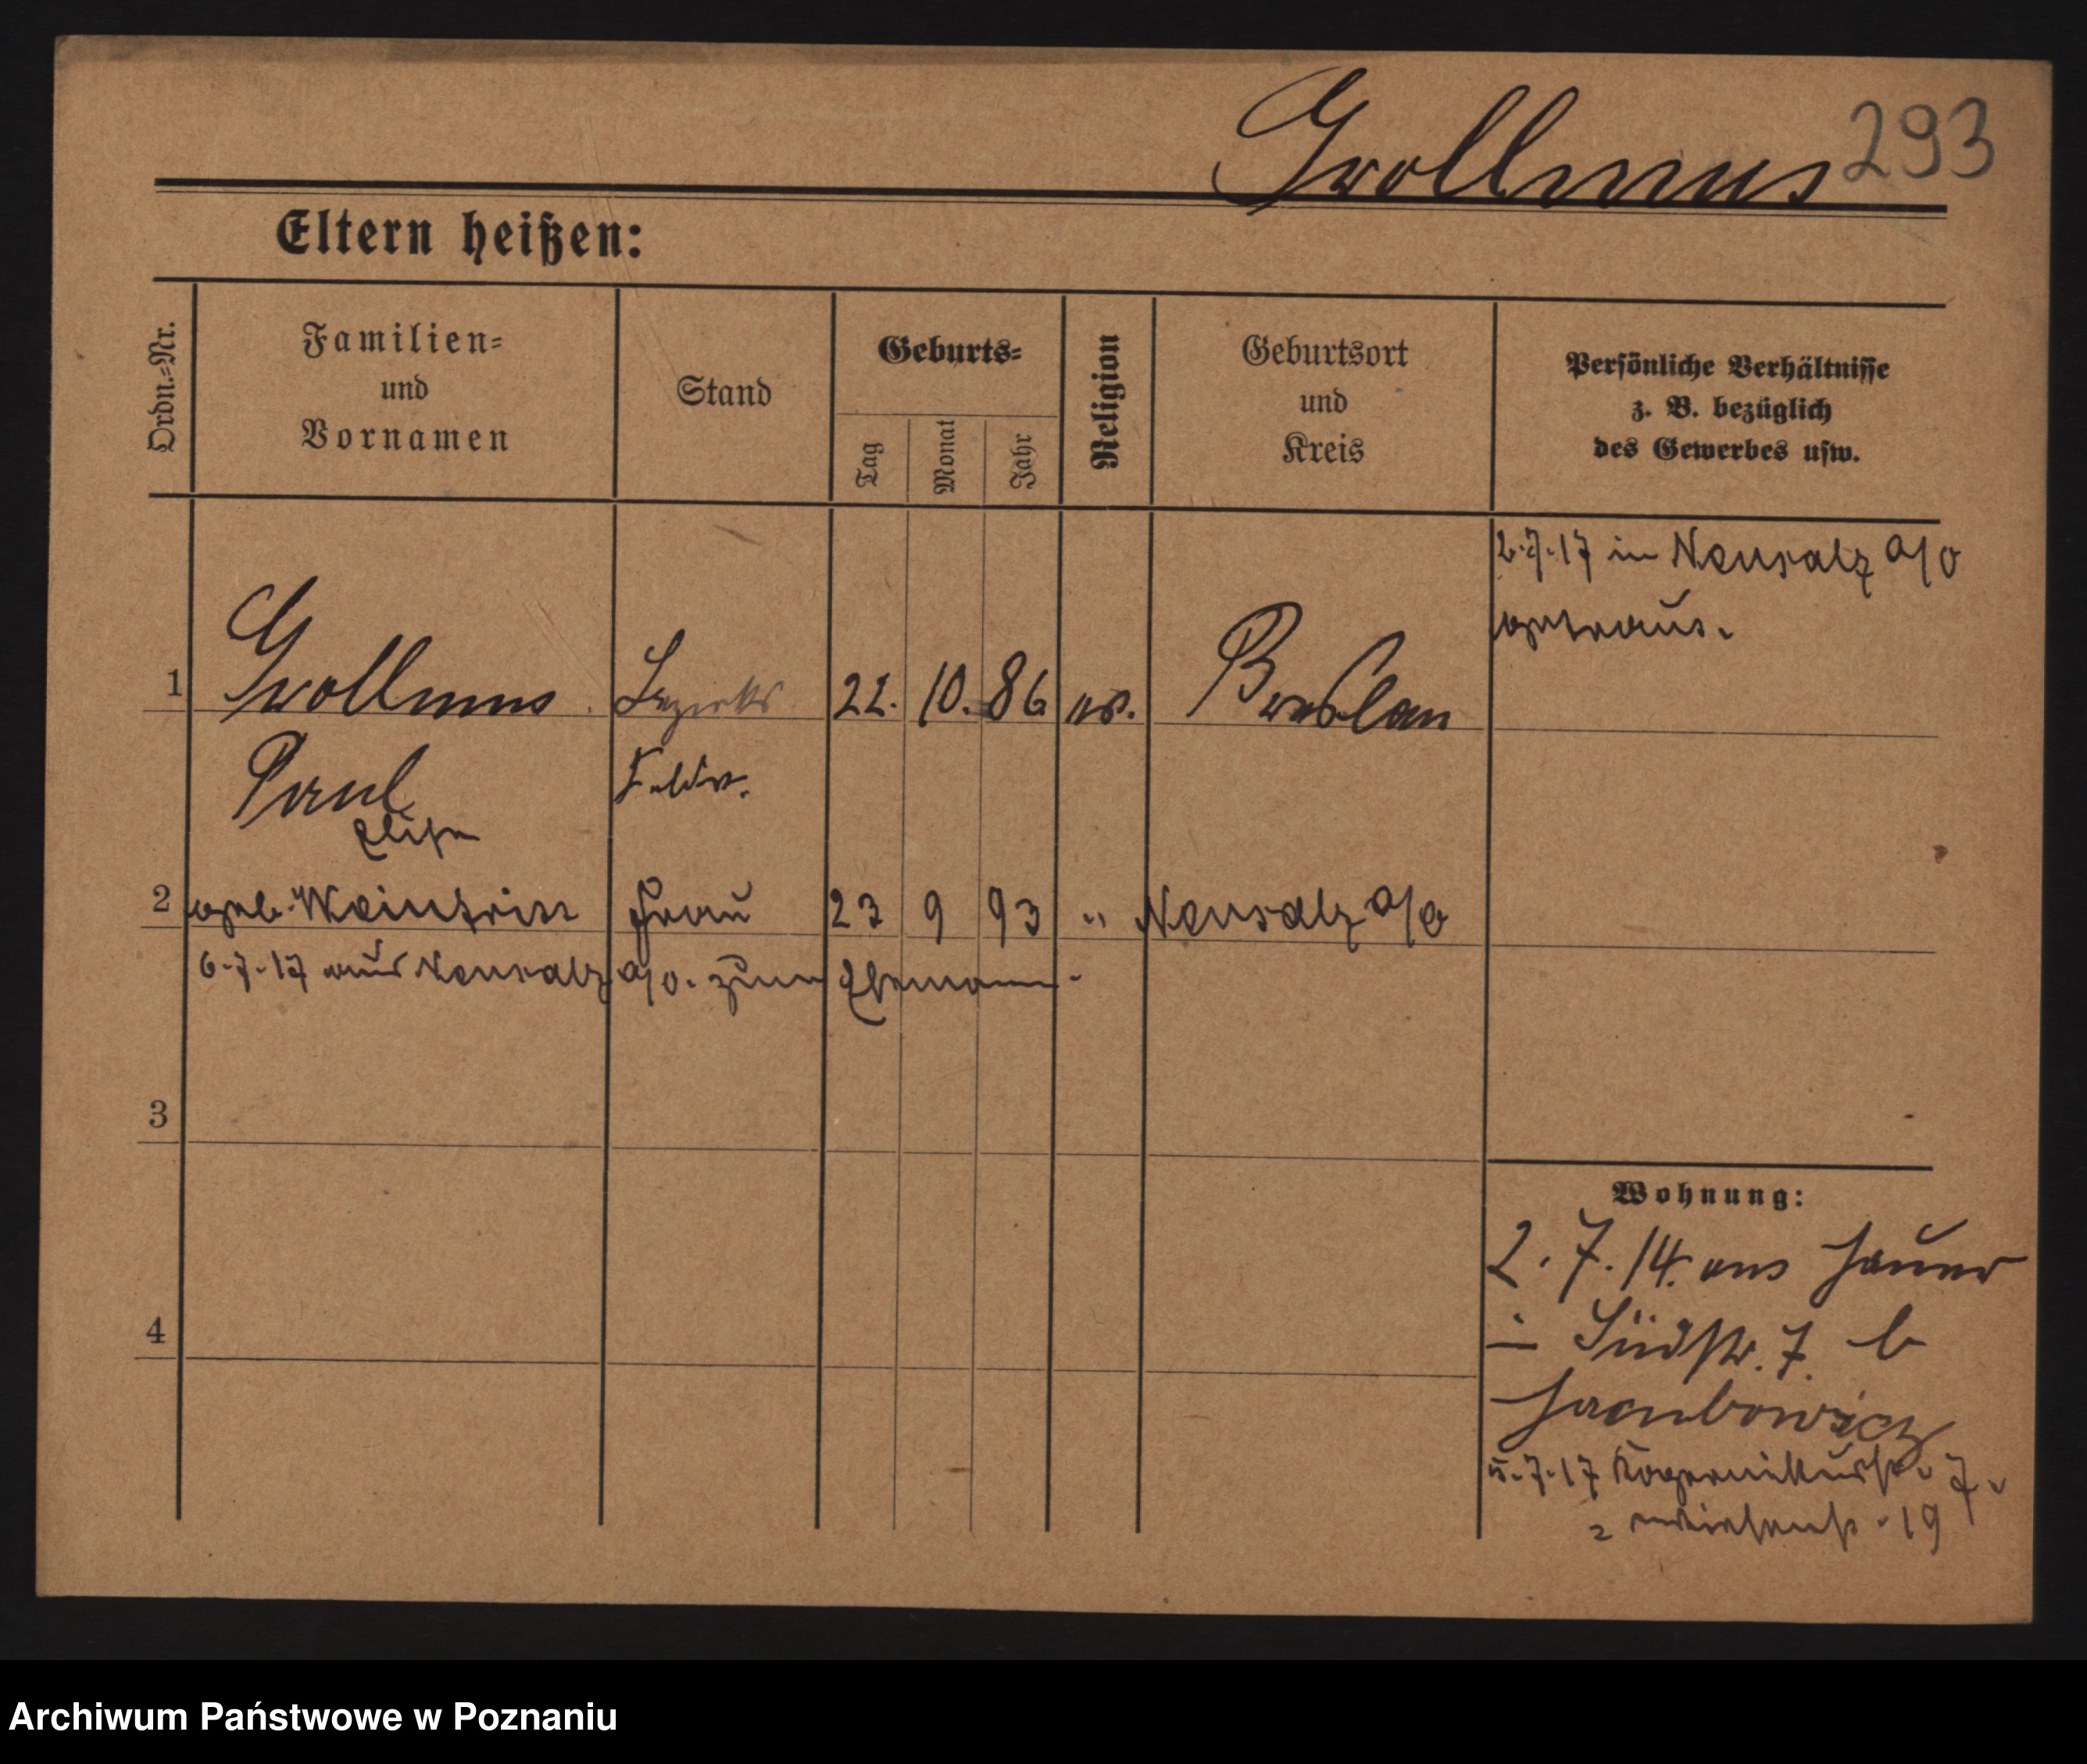 Grollmus 293
Eltern heißen:
Ordn.-Nr.
Familien-
und
Vornamen
Stand
Geburts-
Tag
Monat
Jahr
Religion
Geburtsort
und
Kreis
Persönliche Verhältnisse
z. B. bezüglich
des Gewerbes usw.
2.7.17 in Neusalz a/O
getraut.
1 Grollmus Bezirks 22. 10. 86 ev. Breslau
Paul Feldw.
Elise
2 geb. Frau 23 9 93 " Neusalz a/O
6.7.17 aus Neusalz a/O. zum Ehemann.
3
Wohnung:
2.7.14. aus Jauer
in Südstr. 7 b
4
5.7.17 7.
19
Archiwum Państwowe w Poznaniu